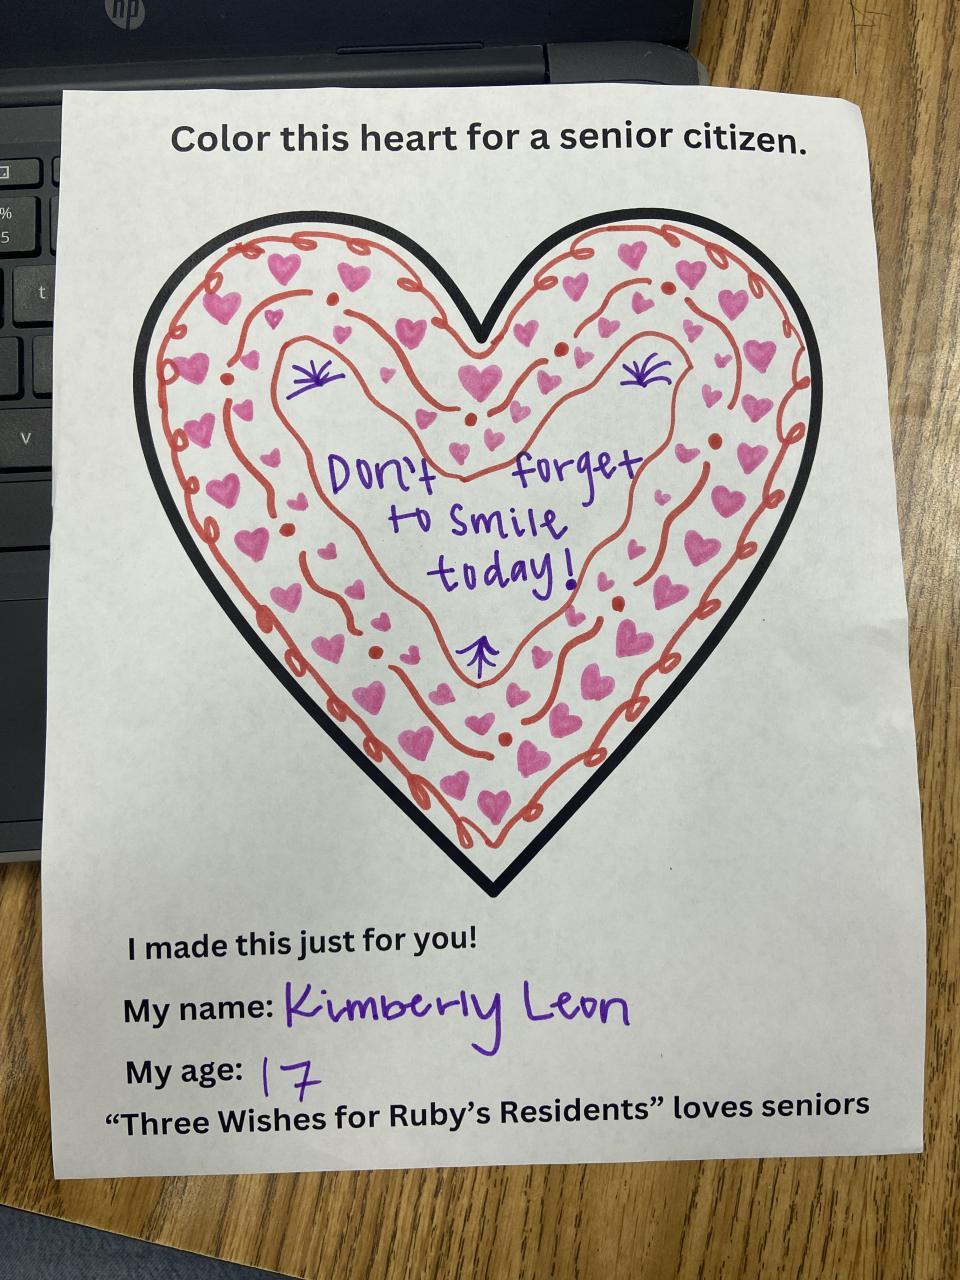 hp
%
5
t
v
Color this heart for a senior citizen.
Don't forget
to smile
today!
I made this just for you!
My name: Kimberly Leon
My age: 17
“Three Wishes for Ruby’s Residents” loves seniors